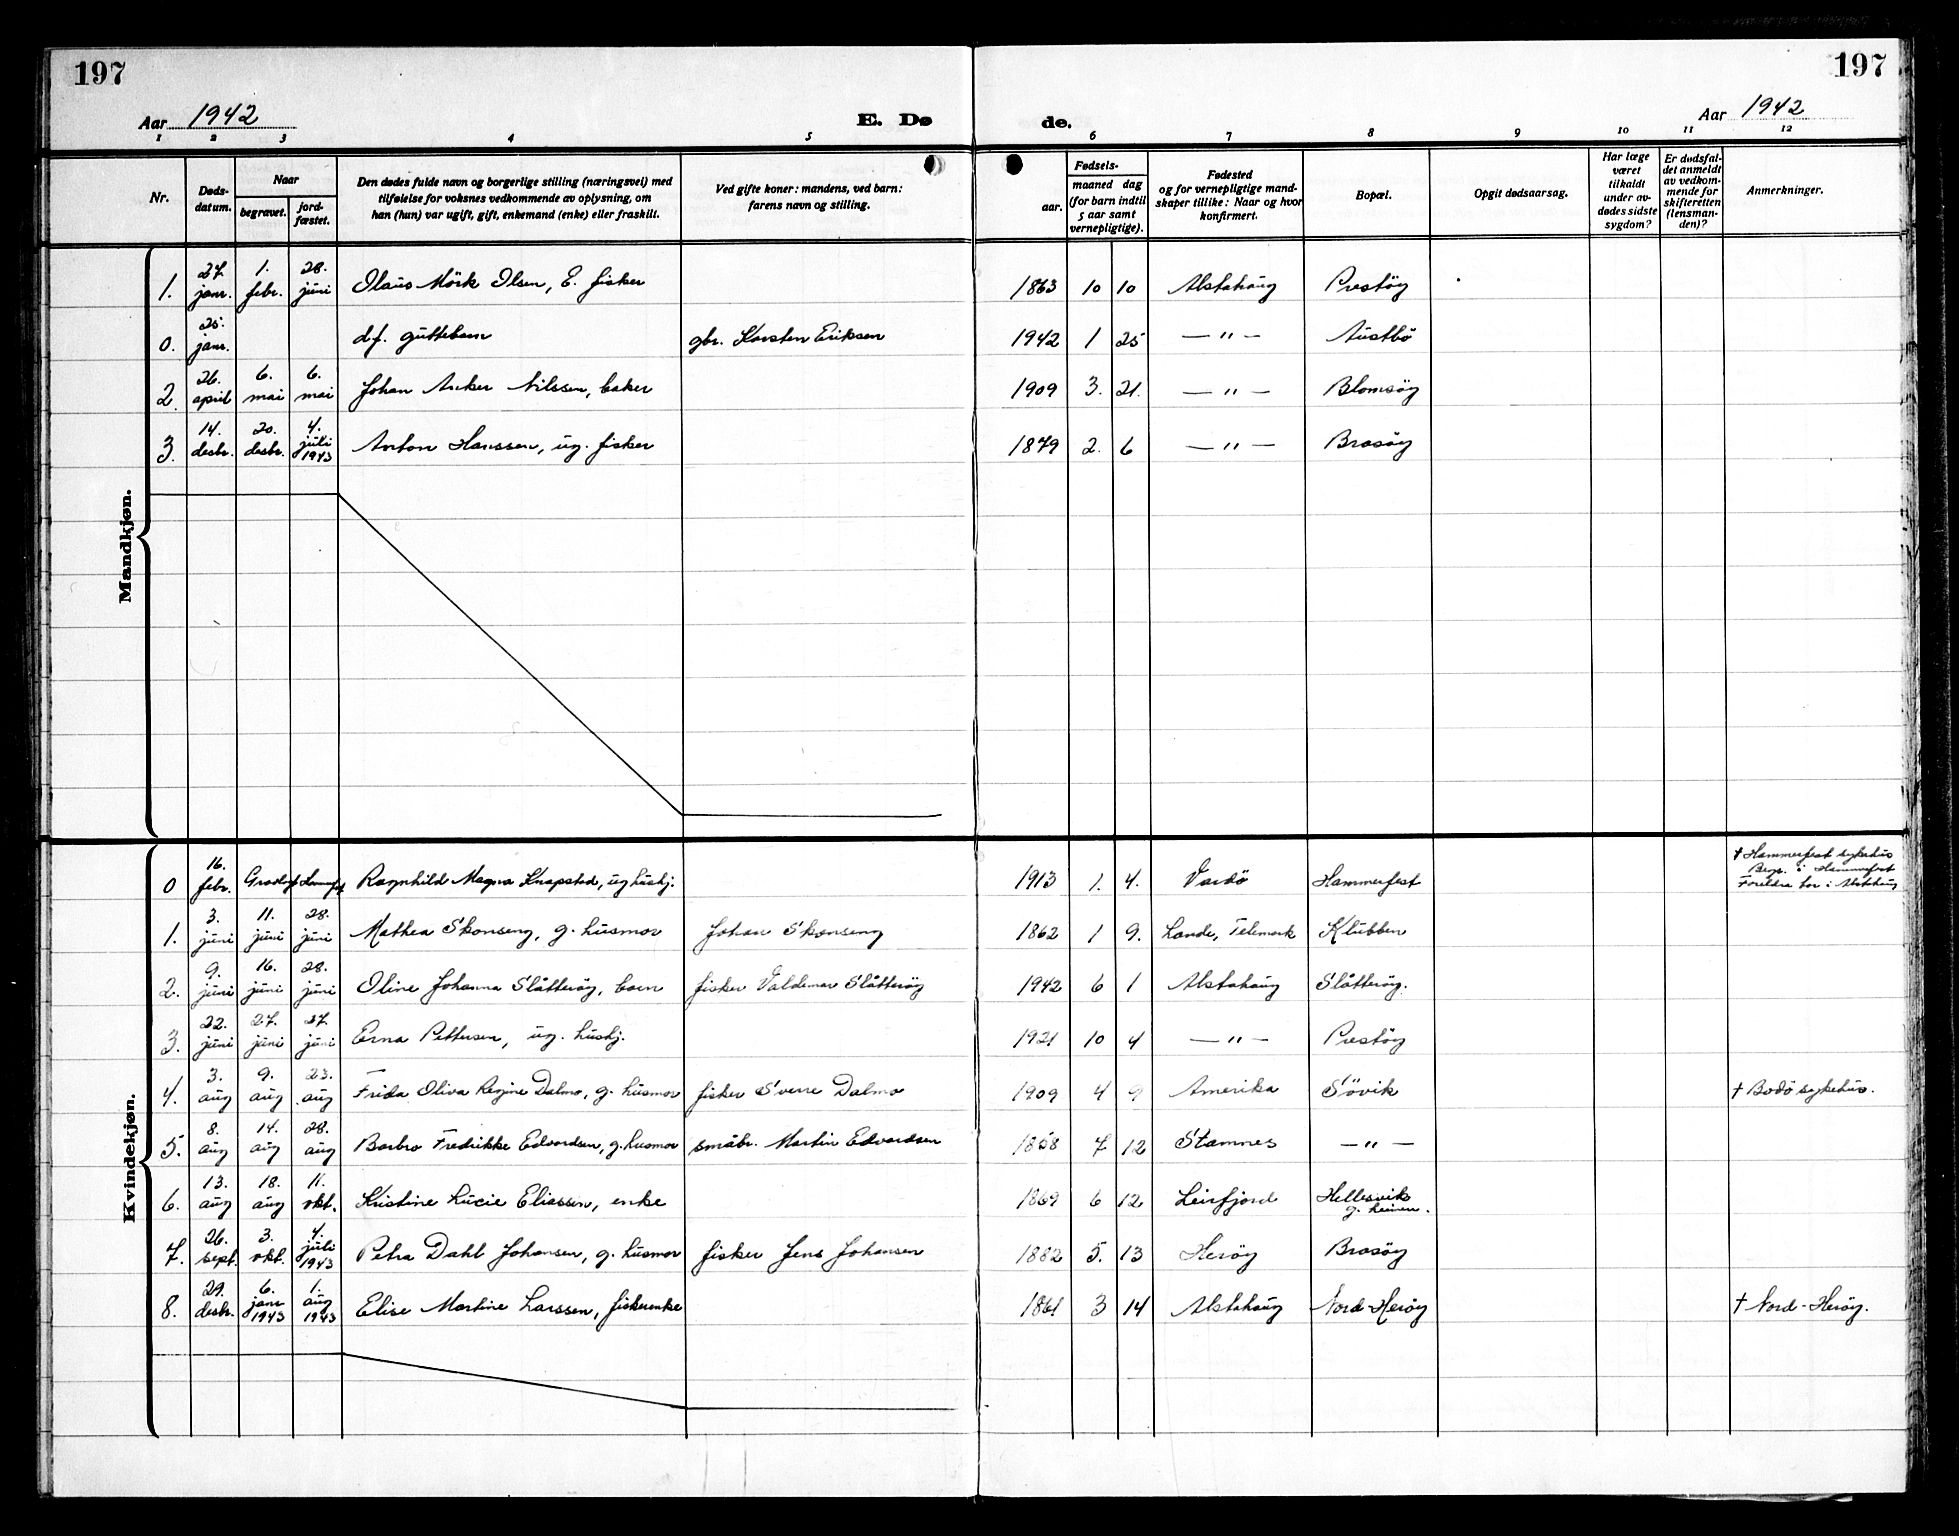 197
197
Aar 1942
E. Dø
de.
Aar 1942
1 2 3 4 5 6 7 8 9 10 11 12
Nr.
Døds-
datum.
Naar
begravet.
jord-
fæstet.
Den dødes fulde navn og borgerlige stilling (næringsvei) med
tilføielse for voksnes vedkommende av oplysning, om
han (hun) var ugift, gift, enkemand (enke) eller fraskilt.
Ved gifte koner: mandens, ved barn:
farens navn og stilling.
Fødsels-
aar.
maaned dag
(for barn indtil
5 aar samt
vernepligtige).
Fødested
og for vernepligtige mand-
skaper tillike: Naar og hvor
konfirmert.
Bopæl.
Opgit dødsaarsag.
Har læge
været
tilkaldt
under av-
dødes sidste
sygdom?
Er dødsfal-
det anmeldt
av vedkom-
mende for
skifteretten
(lensman-
den)?
Anmerkninger.
Mandkjøn.
1. 27. janr. 1. febr. 28. juni Olaus Mörk Olsen, E. fisker 1863 10 10 Alstahaug Prestöy
0. 25. janr. d.f. guttebarn gbr. Karsten Eriksen 1942 1 25 — " — Austbö
2. 26. april 6. mai 6. mai Johan Anker Nilssen, baker 1909 3. 21. — " — Blomsöy
3. 14. desbr. 20. desbr. 4. juli 1943 Anton Hanssen, ug. fisker 1879 2. 6 — " — Brasöy
Kvindekjøn.
0 16. febr. Ragnhild Magna Knapstad, ug hushj. 1913 1. 4. Vardö Hammerfest † Hammerfest sykehus
Begr. i Hammerfest
Foreldre bor i Alstahaug
1. 3. juni 11. juni 28. juni Mathea Skonseng, g. husmor Johan Skonseng 1862 1 9. Lande, Telemark Klubben
2. 9. juni 16. juni 28. juni Oline Johanna Slåtteröy, barn fisker Valdemar Slåtteröy 1942 6 1 Alstahaug Slåtteröy.
3. 22. juni 27. juni 27. juni Erna Pettersen, ug. hushj. 1921 10 4 — " — Prestöy
4. 3. aug 9. aug 23. aug Frida Oliva Regine Dalmo, g. husmor fisker Sverre Dalmo 1909 4 9 Amerika Sövik † Bodö sykehus.
5. 8. aug 14. aug 28. aug Barbro Fredrikke Edvardsen, g. husmor småbr. Martin Edvardsen 1858 7 12 Stamnes — " —
6. 13. aug 18. aug 11. okt. Kristine Lucie Eliassen, enke 1869 6 12 Leirfjord Hellesvik
g. heimen.
7. 26. sept. 3. okt. 4. juli 1943 Petra Dahl Johansen, g. husmor fisker Jens Johansen 1882 5. 13 Heröy Brasöy
8. 29. desbr. 6. janr 1943 1. aug 1943 Elise Martine Larssen, fiskerenke 1861 3 14 Alstahaug Nord-Heröy † Nord-Heröy.